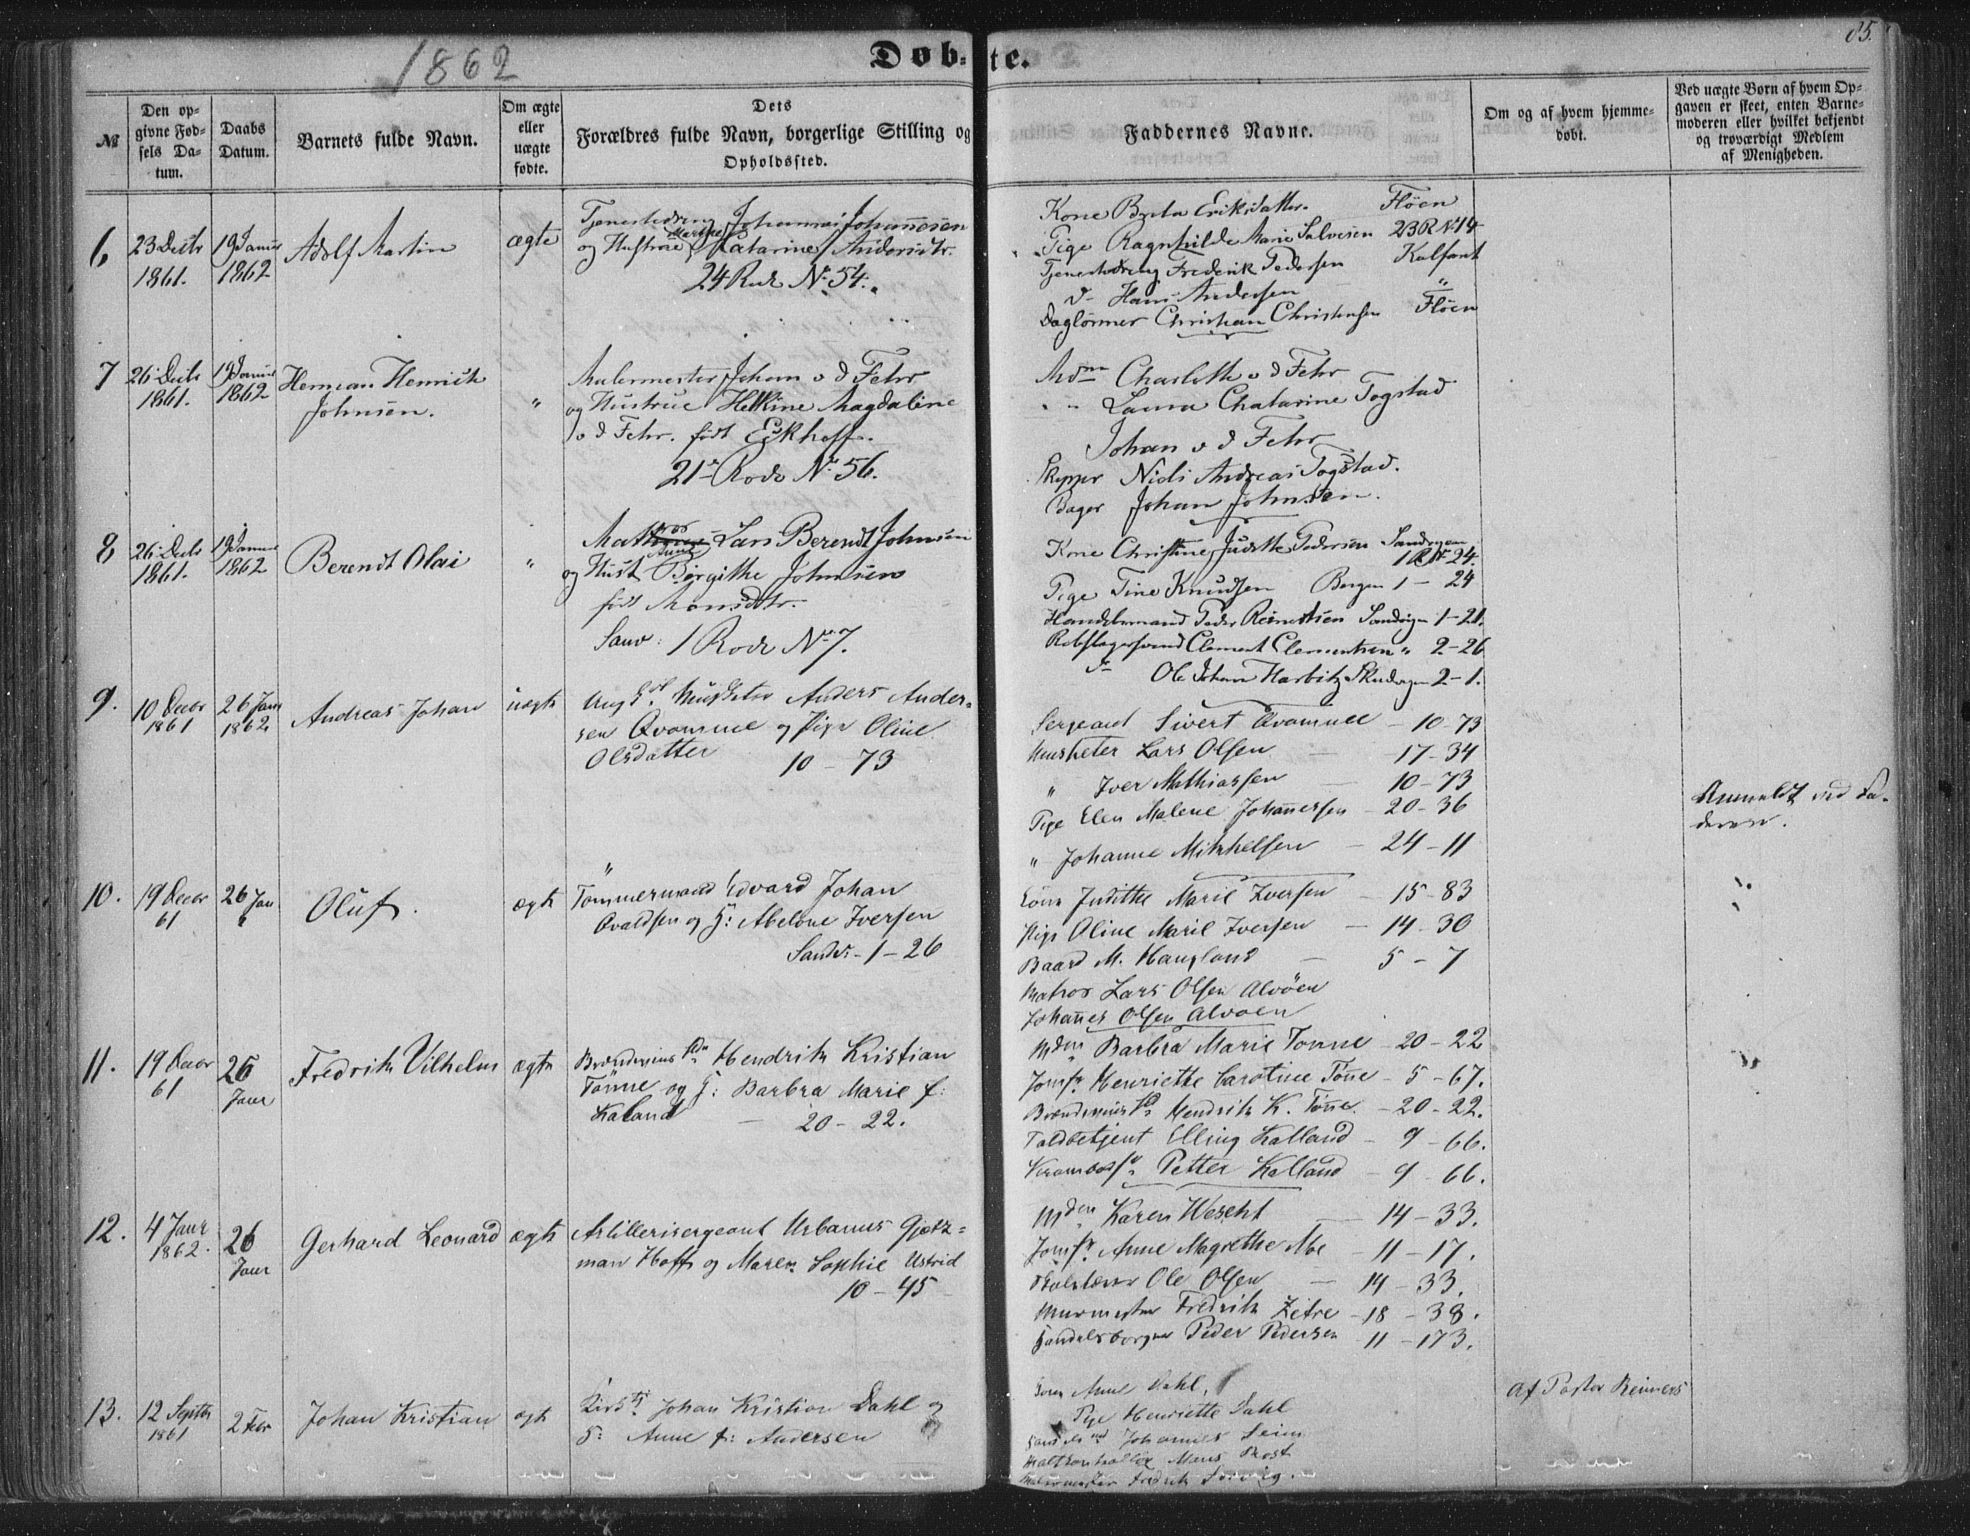 1862
Døb-te.
85.
№
Den op-
givne Fød-
sels Da-
tum.
Daabs
Datum.
Barnets fulde Navn.
Om ægte
eller
uægte
fødte.
Dets
Forældres fulde Navn, borgerlige Stilling og
Opholdssted.
Faddernes Navne.
Om og af hvem hjemme-
døbt.
Ved uægte Børn af hvem Op-
gaven er skeet, enten Barne-
moderen eller hvilket bekjendt
og troværdigt Medlem
af Menigheden.
6
23 Decbr
1861.
19 Januar
1862
Adolf Martin
ægte
Tjenestedreng Johannes Johannesen
og Hustrue Marine Katarine Andersdtr.
24 Rode No 54.
Kone Brita Eriksdatter. Fløen
Pige Ragnhilde Marie Salvesen 23 R No 14
Tjenestedreng Frederik Pedersen Kalfaret
d- Hans Andersen "
Daglønner Christian Christensen Fløen
7
26 Decbr
1861.
19 Januar
1862
Herman Henrich
Johnsen.
"
Malermester Johan v d Fehr
og Hustrue Helkine Magdaline
v d Fehr. født Eckhoff.
21 Rode No 56.
Mdme Charlotte v d Fehr
" Laura Chatarine Togstad
Johan v d Fehr
Skipper Niels Andreas Togstad.
Bager Johan Johnsen.
8
26 Decbr
1861.
19 Januar
1862
Berendt Olai
"
Matros Lars Berendt Johnsen
og Hust Anne Børgithe Johnsen
født Monsdtr.
Sanv: 1 Rode No 7.
Kone Christine Judithe Pedersen Sandvigen
1 R No 24.
Pige Tine Knudsen Bergen 1 - 24
Handelsmand Peder Reinertsen Sandvigen 1-21.
Rebslagersvend Clement Clementsen " 2-26
do Ole Johan Harbitz Skudevigen 2-1.
9.
10 Decbr
1861
26 Janr
1862
Andreas Johan
uægte
Ung. Musketer Anders Ander-
sen Qvamme og Pige Oline
Olsdatter 10 - 73
Sergeant Sivert Qvamme - 10-73
Musketer Lars Olsen - 17-34
" Iver Mathiassen - 10-73
Pige Elen Malene Johannessen - 20-36
" Johanne Mikkelsen - 24-11
Anmeldt ved Fa-
deren.
10.
19 Decbr
61
26 Jan
"
Oluf.
ægte
Tømmermand Edvard Johan
Ovaldsen og H: Abelone Iversen
Sandv. - 1 - 26
Kone Judithe Marie Iversen - 15-83
Pige Oline Marie Iversen - 14-30
Baard M. Haugland - 5-7
Matros Lars Olsen Alvøen
Johannes Olsen Alvøen
11.
19 Decbr
61
26
Janr
Fredrik Vilhelm
ægte
Brændeviins Hdr Hendrik Kristian
Tønne og H: Barbra Marie f:
Kaland - 20 - 22.
Mdm Barbra Marie Tonne - 20-22
Jomfr Henriette Carotine Tonne - 5-67.
Brændeviins Hd Hendrik K. Tonne - 20-22.
Toldbetjent Elling Kalland - 9-66.
Krambodsv Petter Kalland - 9-66.
12.
4 Janr
1862.
26
Janr
Gerhard Leonard
ægte
Artillerisergeant Urbanus Gjetz-
man Hoff og Maren Sophie Ustrid
10 - 45
Mdm Karen Wescht - 14-33.
Jomfr Anne Magrethe Moe - 11-17.
Skolelærer Ole Olsen - 14-33.
Murmester Fredrik Zetre - 18-38.
Handelsborger Peder Pedersen 11-173.
13.
12 Septbr
1861
2 Febr
Johan Kristian
ægte
Johan Kristian Dahl og
H: Anne f: Andersen
Kone Anne Dahl
Pige Henriette Dahl
Johannes Seim
Maltkontrollør Mons Skost
Malermester Fredrik
Af Pastor Reimers